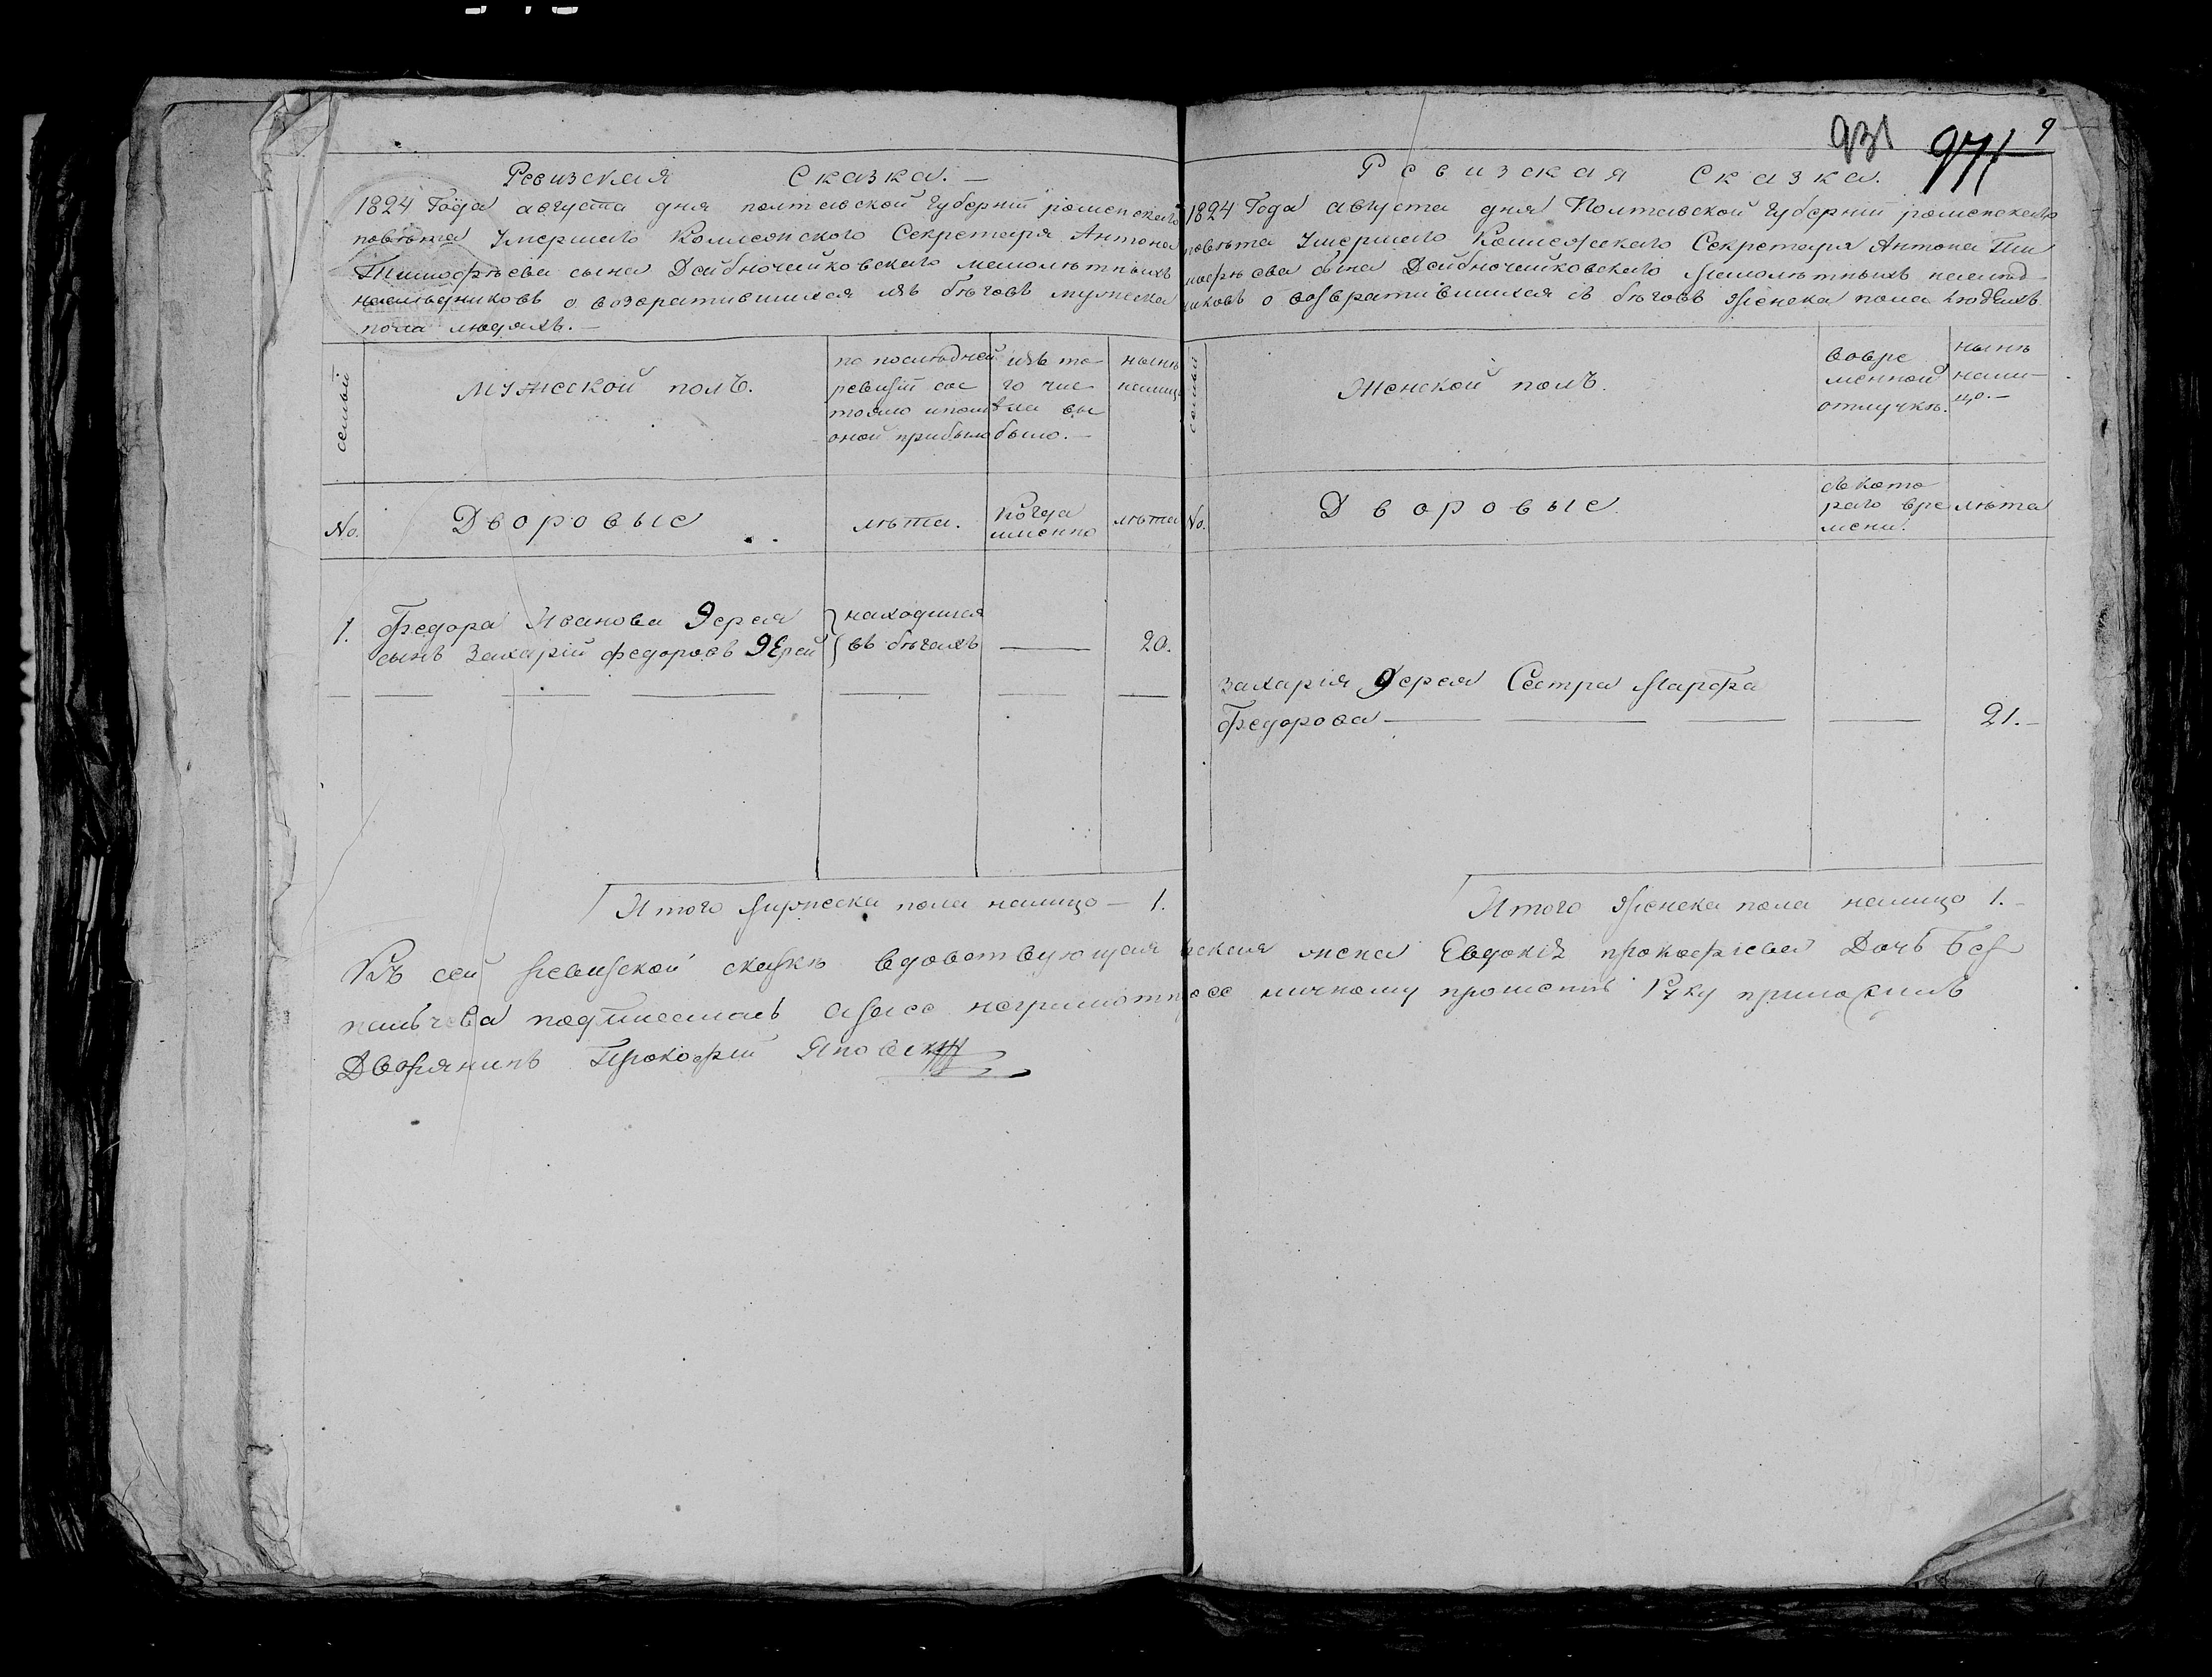 931 971 9
Ревизская Сказка. —
1824 Года августа дня полтавской губернїи роменскаго
повѣта Умершаго Коллежского Секретаря Антона
Тимофѣева сына малолѣтныхъ
наслѣдниковъ о возвратившихся изъ бѣговъ мужеска
пола людяхъ. —
семьи
мужеской полъ.
по последней
ревизїи сос
тояло и после
оной прибыло
изъ то
го чис
ла вы
было. —
нынѣ
налицо
No.
Дворовые
лѣта.
Когда
именно
лѣта
1. Федора Иванова Дерея
сынъ Захарїй Федоровъ Дерей
находился
въ бѣгахъ — 20.
Итого Мужеска пола налицо — 1.
Ревизская Сказка.
1824 Года августа дня Полтавской губернїи роменскаго
повѣта Умершаго Коллежскаго Секретаря Антона Тим
мофѣева сына малолѣтныхъ наслѣд
никовъ о возвратившихся съ бѣговъ Женска пола людехъ.
семьи
Женской полъ.
вовре
менной
отлучке.
нынѣ
нали
цо. —
No.
Дворовые
съ кото
раго вре
мени.
лѣта
Захарїя Дерея Сестра Марфа
Федорова — 21. —
Итого Женска пола налицо 1. —
Къ сей ревизской сказкѣ вдовствующая жена Евдокія прокофіева Дочь
Руку приложилъ
Дворянинъ Прокофїй